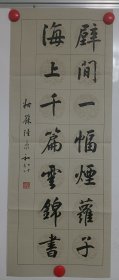 壁間一幅煙蘿子
海上千篇雲錦書